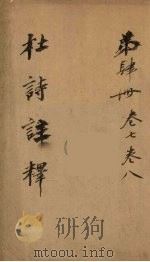 第肆冊卷七卷八
杜詩註釋
蒐狗
mtoou.info